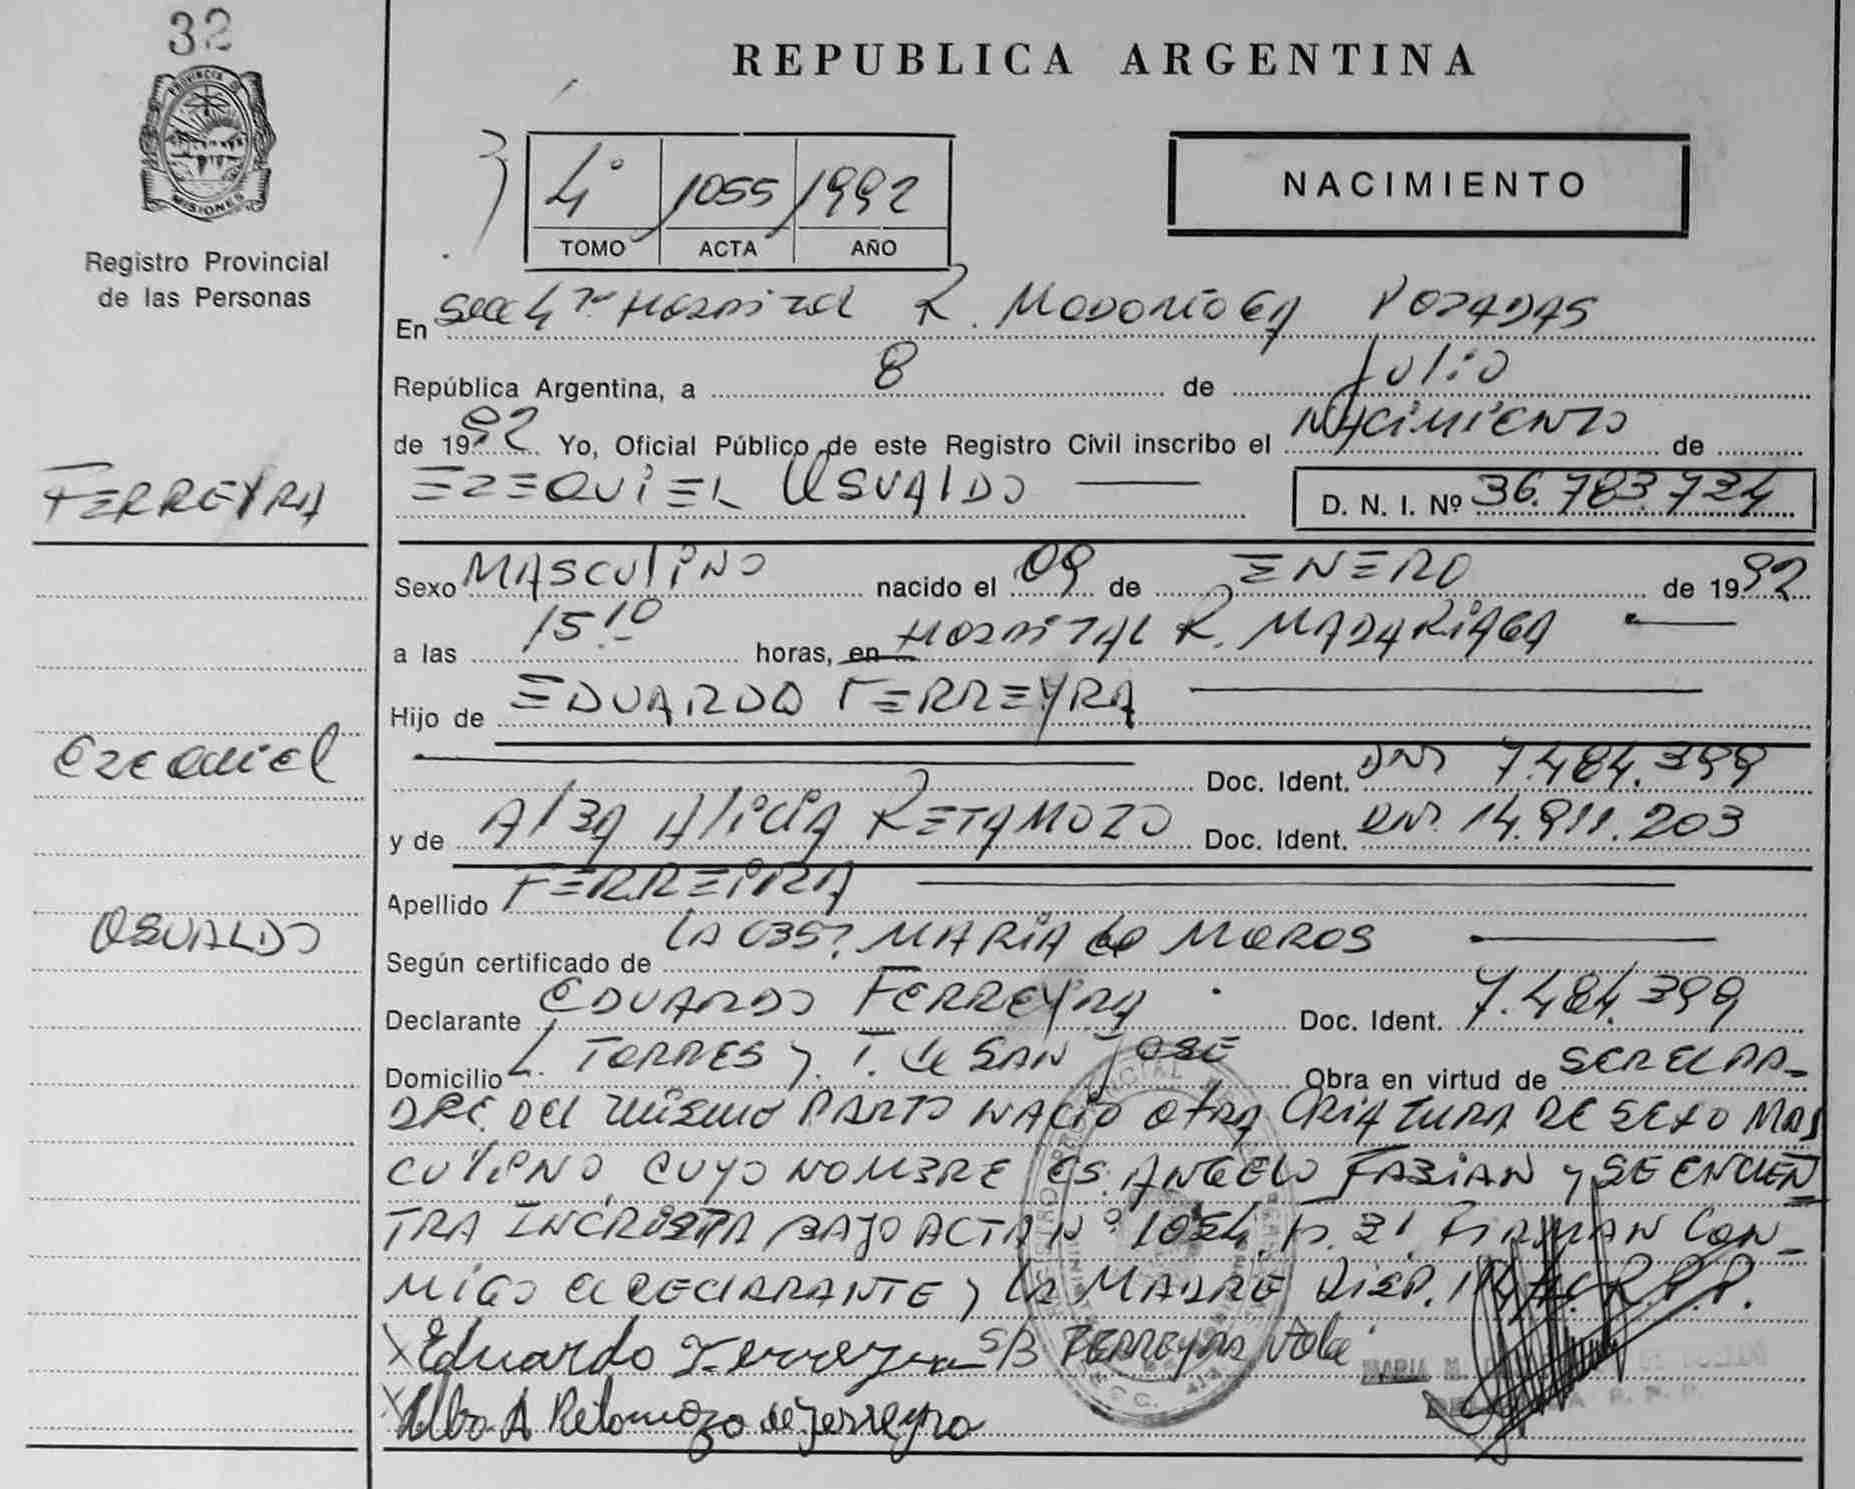 32
REPUBLICA ARGENTINA
PROVINCIA
MISIONES
Registro Provincial
de las Personas
4° 1055 1992
TOMO ACTA AÑO
NACIMIENTO
En Secc 4ta Hospital R. Madariaga Posadas
República Argentina, a 8 de Julio
de 1992 Yo, Oficial Público de este Registro Civil inscribo el NACIMIENTO de
FERREYRA
EZEQUIEL OSVALDO
D. N. I. Nº 36.783.724
Sexo MASCULINO nacido el 09 de ENERO de 1992
a las 15 10 horas, en HOSPITAL R. MADARIAGA
Hijo de EDUARDO FERREYRA
Ezequiel
Doc. Ident. DNI 7.484.399
y de Alba Alicia RETAMOZO Doc. Ident. DNI. 14.911.203
Apellido FERREIRA
OSVALDO
Según certificado de LA OBST. MARIA de MOROS
Declarante EDUARDO FERREYRA Doc. Ident. 7.484.399
Domicilio L. TORRES y T. de SAN JOSE Obra en virtud de SER EL PA-
DRE. Del mismo PARTO NACIO otra CRIATURA DE SEXO MAS
CULINO, CUYO NOMBRE ES. ANGELO FABIAN y SE ENCUEN
TRA INCRIPTA BAJO ACTA N° 1054. 31. FIRMAN CON-
MIGO el DECLARANTE y la MADRE DISP. R.P.P.
X Eduardo Ferreyra S/B FERREYRA Vale
X Alba A Retamozo de Ferreyra
MARIA M.